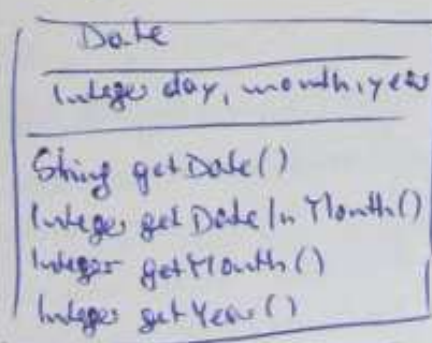 Date
Integer day, month, year
String getDate()
Integer getDateInMonth()
Integer getMonth()
Integer getYear()